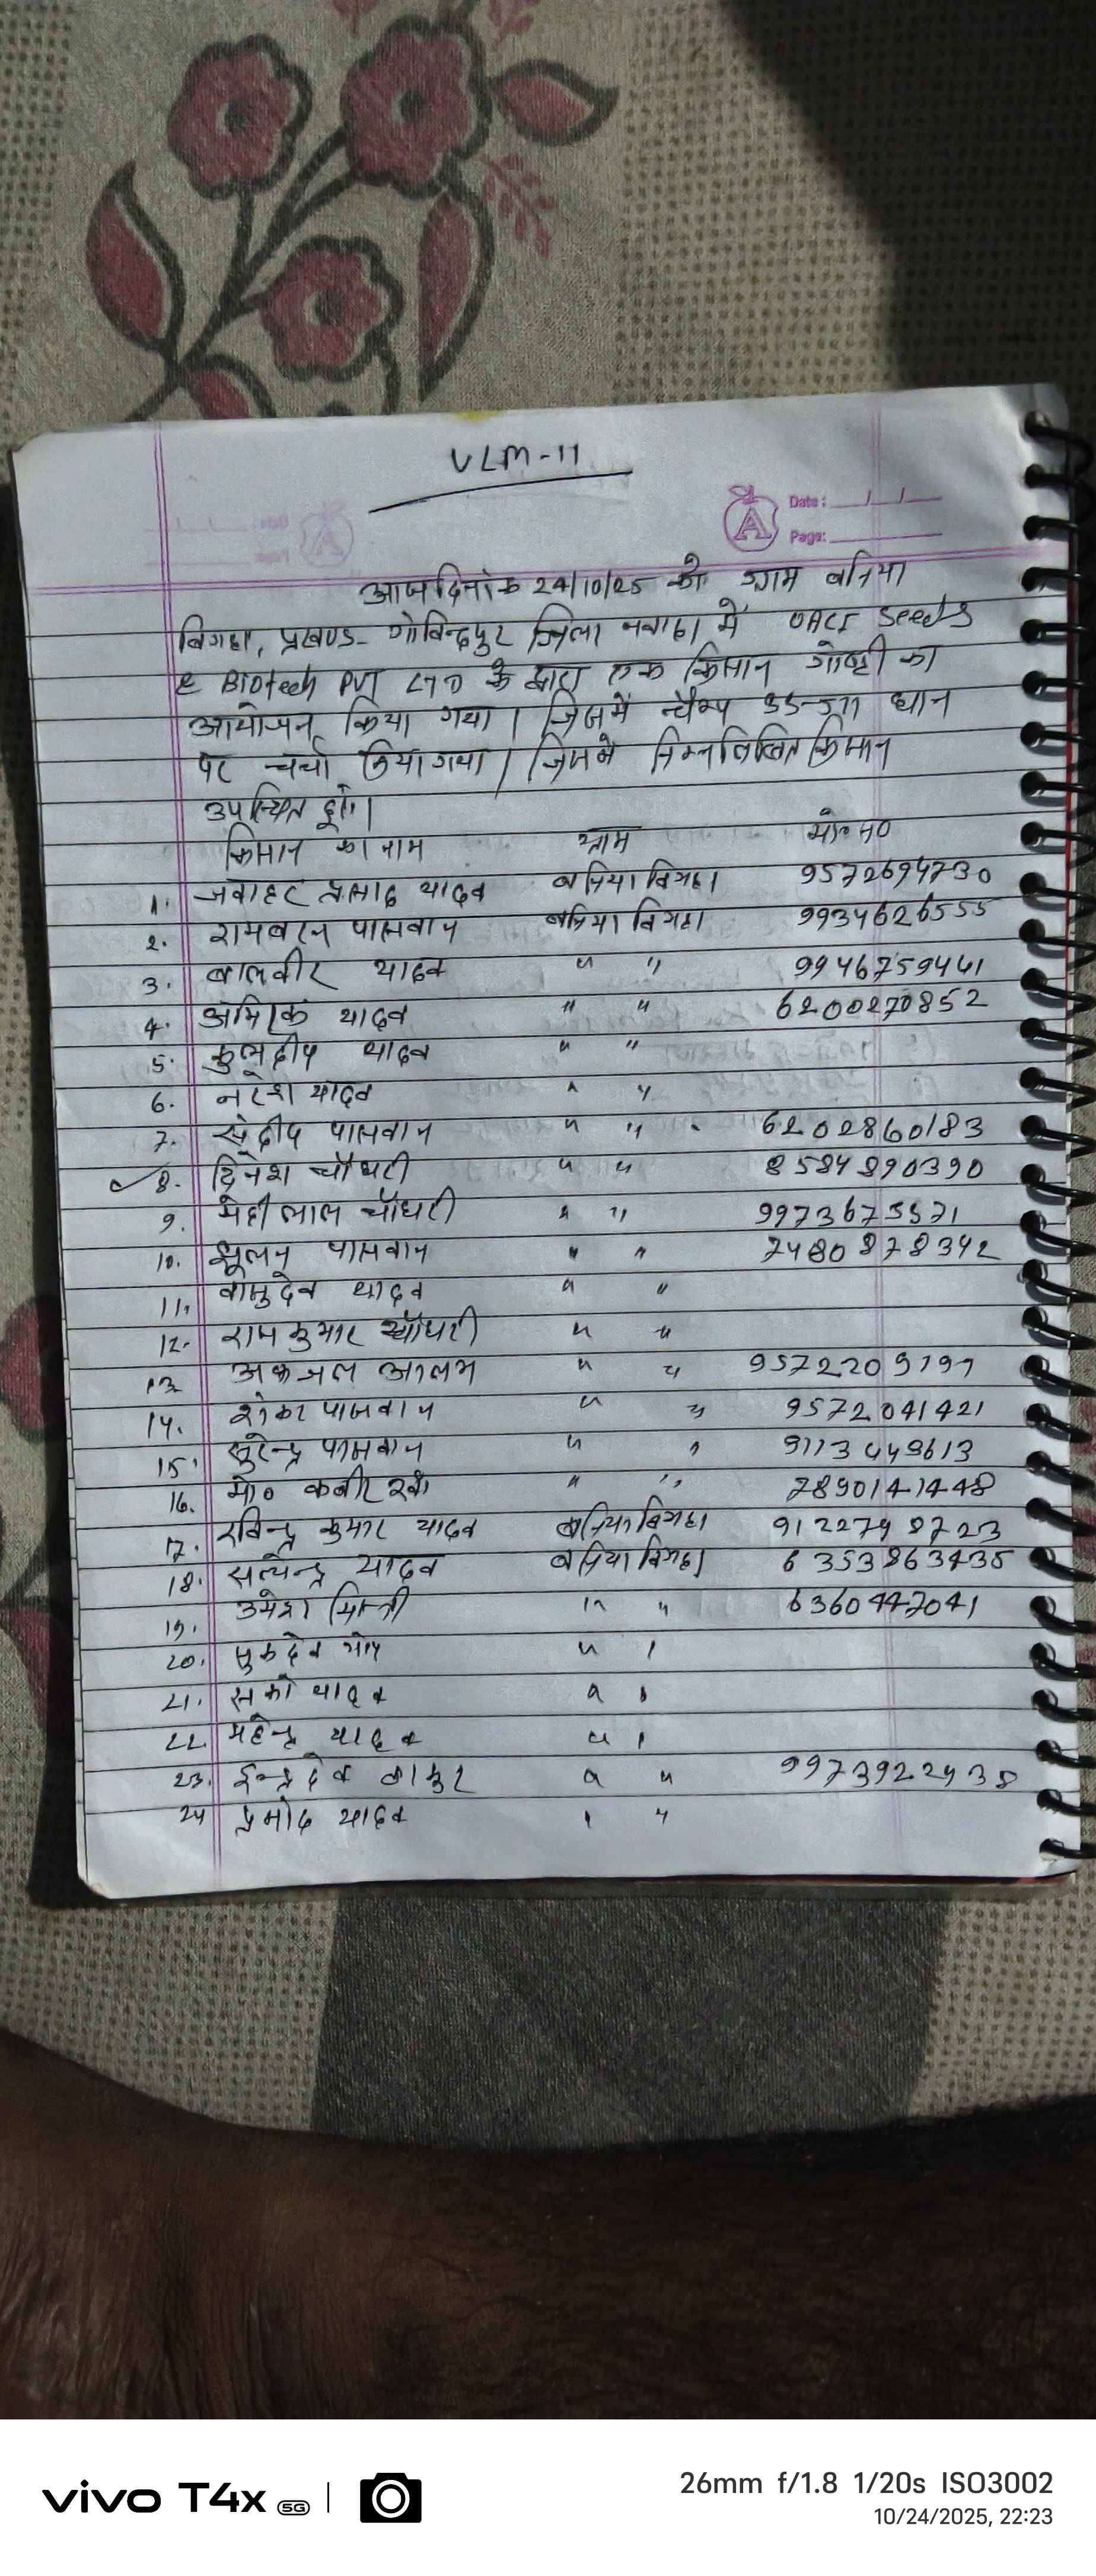 VLM-11
Date: __/__/__
Page: ______
आज दिनांक 24/10/25 को ग्राम बनिया
बिगहा, प्रखण्ड- गोविन्दपुर जिला नवादा में Seeds
& Biotech PVT LTD के द्वारा एक किसान गोष्ठी का
आयोजन किया गया। जिसमें चैम्प धान
पर चर्चा किया गया। जिसमें निम्नलिखित किसान
उपस्थित हुए।
किसान का नाम ग्राम मो० न०
1. जवाहर प्रसाद यादव बनिया बिगहा 9572694730
2. रामबरन पासवान बनिया बिगहा 9934626555
3. बालवीर यादव " " 9946759441
4. अमिरक यादव " " 6200270852
5. कुलदीप यादव " "
6. नरेश यादव " "
7. संदीप पासवान " " 6202860183
8. दिनेश चौधरी " " 8584890390
9. मेही लाल चौधरी " " 9973675571
10. झूलन पासवान " " 7480878342
11. वासुदेव यादव " "
12. राम कुमार चौधरी " "
13 आलम " "
14. शंकर पासवान " " 9572041421
15. सुरेन्द्र पासवान " " 9113449613
16. मो० कबीर " " 7890141448
17. रविन्द्र कुमार यादव बनिया बिगहा 9122798723
18. सत्येन्द्र यादव बनिया बिगहा 6353863435
19. उमेश मिस्त्री " " 6360447041
20. सुकदेव " "
21. यादव " "
22. महेन्द्र यादव " "
23. इन्द्रदेव ठाकुर " " 9973922938
24 प्रमोद यादव " "
vivo T4x 5G
26mm f/1.8 1/20s ISO3002
10/24/2025, 22:23